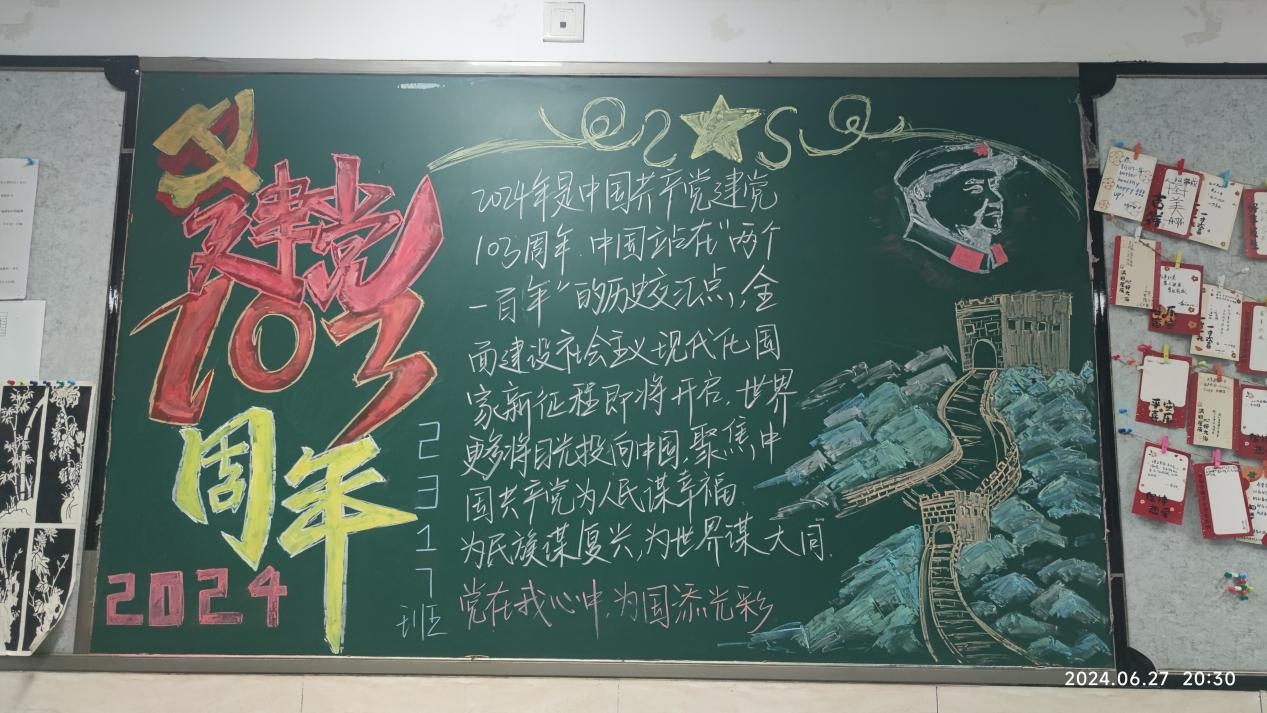 建党
103
周年
2024
2317班
2024年是中国共产党建党
103周年.中国站在"两个
一百年"的历史交汇点,全
面建设社会主义现代化国
家新征程即将开启.世界
更多将目光投向中国.聚焦,中
国共产党为人民谋幸福.
为民族谋复兴,为世界谋大同.
党在我心中,为国添光彩
2024.06.27 20:30